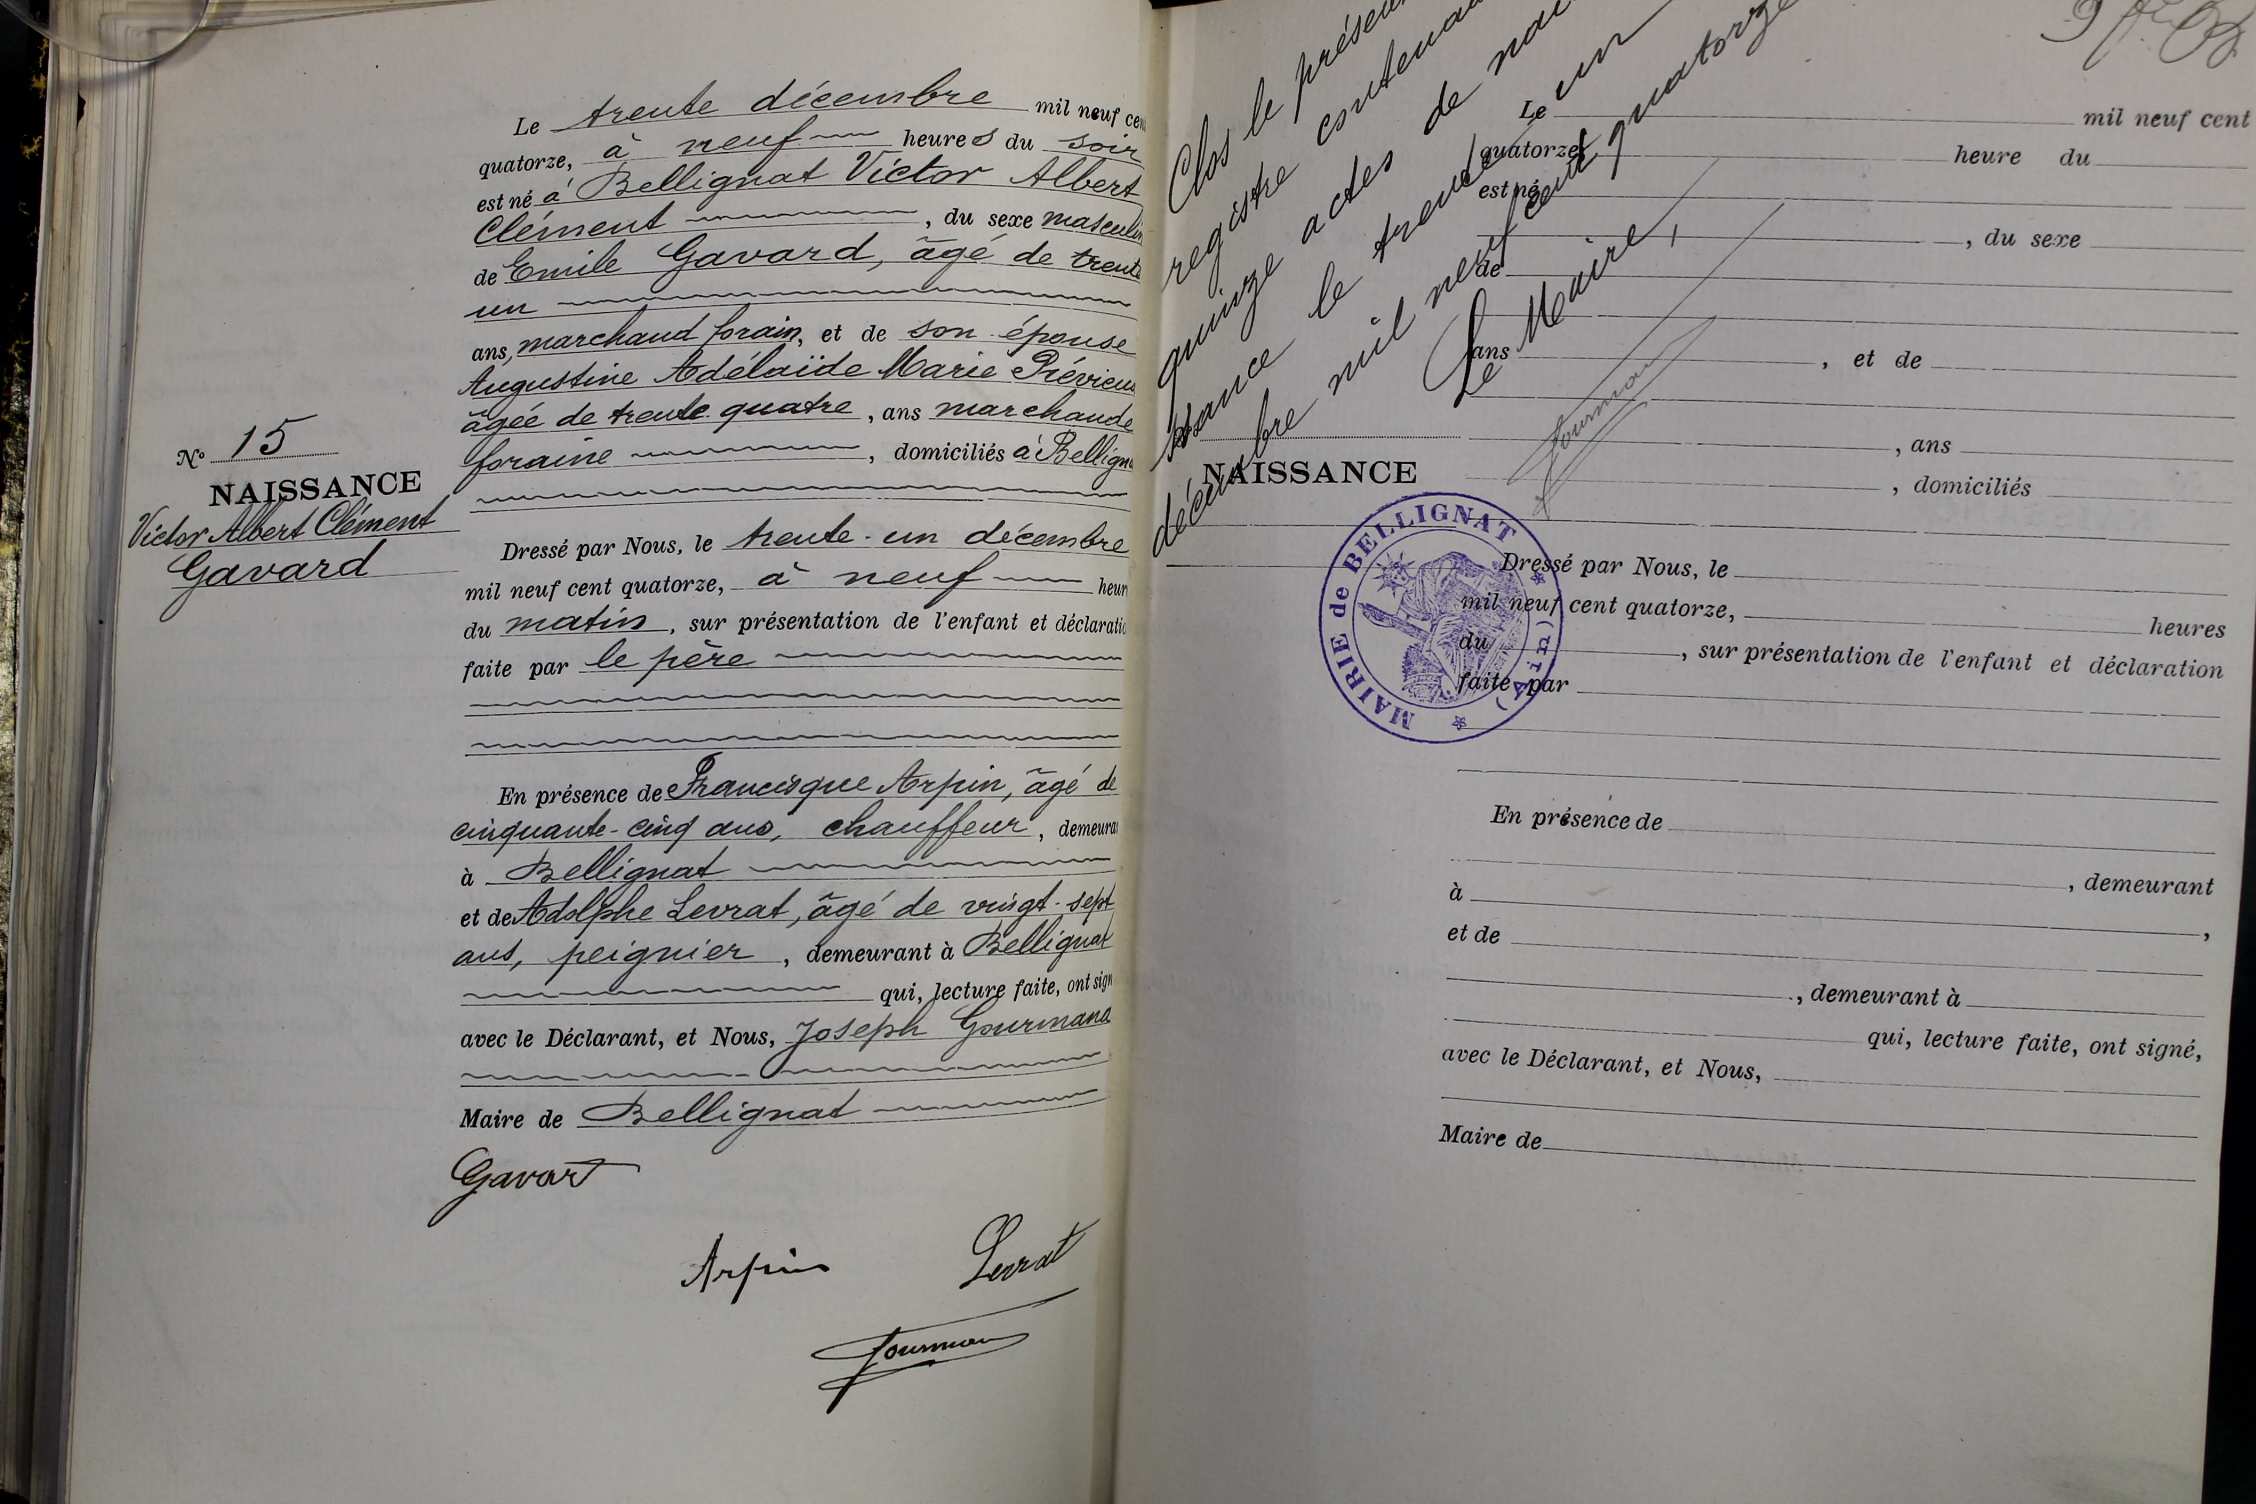 Le trente décembre mil neuf cen
quatorze, à neuf heures du soir
est né à Bellignat Victor Albert
Clément , du sexe masculin
de Emile Gavard, âgé de trente
un
ans, marchand forain, et de son épouse
Augustine Adélaïde Marie
âgée de trente quatre , ans marchande
foraine , domiciliés à Bellign
N° 15
NAISSANCE
Victor Albert Clément
Gavard
Dressé par Nous, le trente-un décembre
mil neuf cent quatorze, à neuf heur
du matin , sur présentation de l'enfant et déclaratio
faite par le père
En présence de Francisque Arpin, âgé de
cinquante-cinq ans, chauffeur , demeura
à Bellignat
et de Adolphe Levrat, âgé de vingt-sept
ans, peignier , demeurant à Bellignat
qui, lecture faite, ont sign
avec le Déclarant, et Nous, Joseph Gourmand
Maire de Bellignat
Gavart
Arpin Levrat
Gourman
Clos le présen
registre contenan
quinze actes de nai
ssance le trente un
décembre mil neuf cent quatorze
Le Maire,
Gourman
Le mil neuf cent
quatorze, heure du
est né
, du sexe
de
ans , et de
, ans
NAISSANCE
, domiciliés
MAIRIE de BELLIGNAT (Ain)
Dressé par Nous, le
mil neuf cent quatorze, heures
du , sur présentation de l'enfant et déclaration
faite par
En présence de
, demeurant
à ,
et de
, demeurant à
qui, lecture faite, ont signé,
avec le Déclarant, et Nous,
Maire de